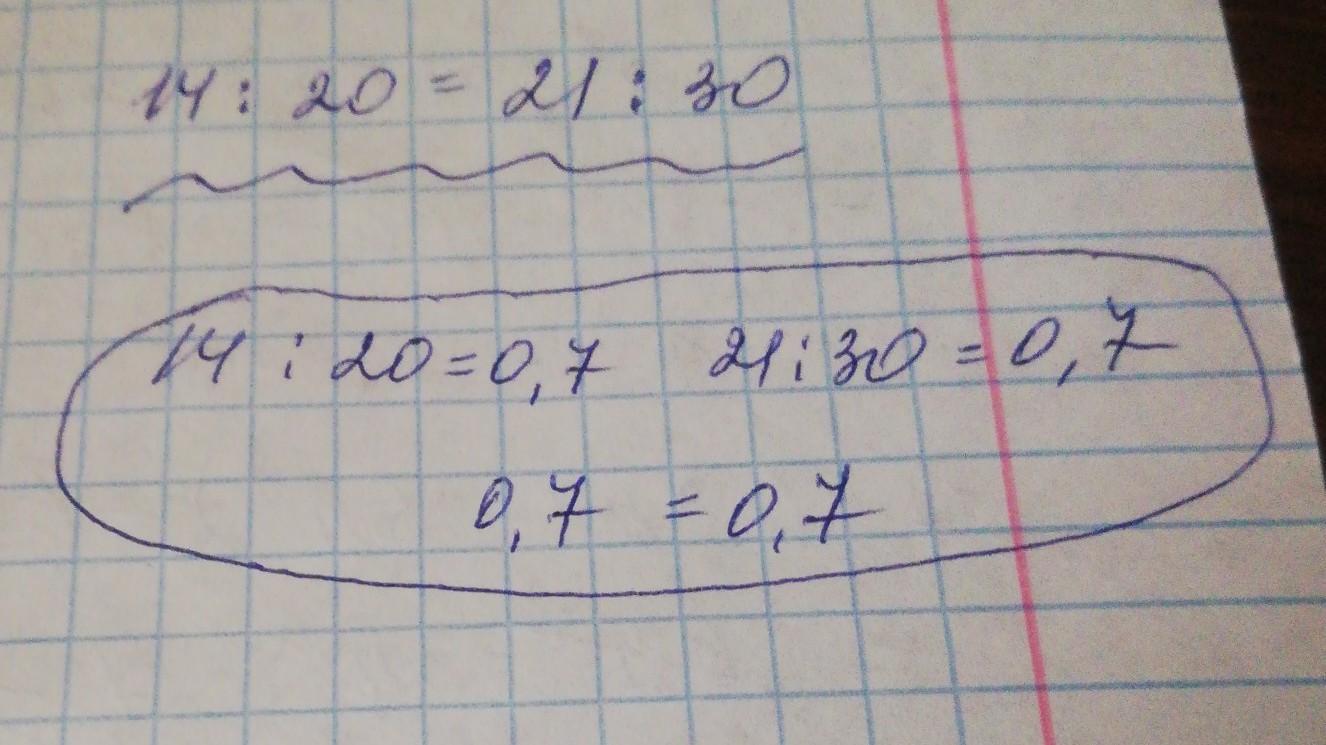 14 : 20 = 21 : 30
14 : 20 = 0,7 21 : 30 = 0,7
0,7 = 0,7